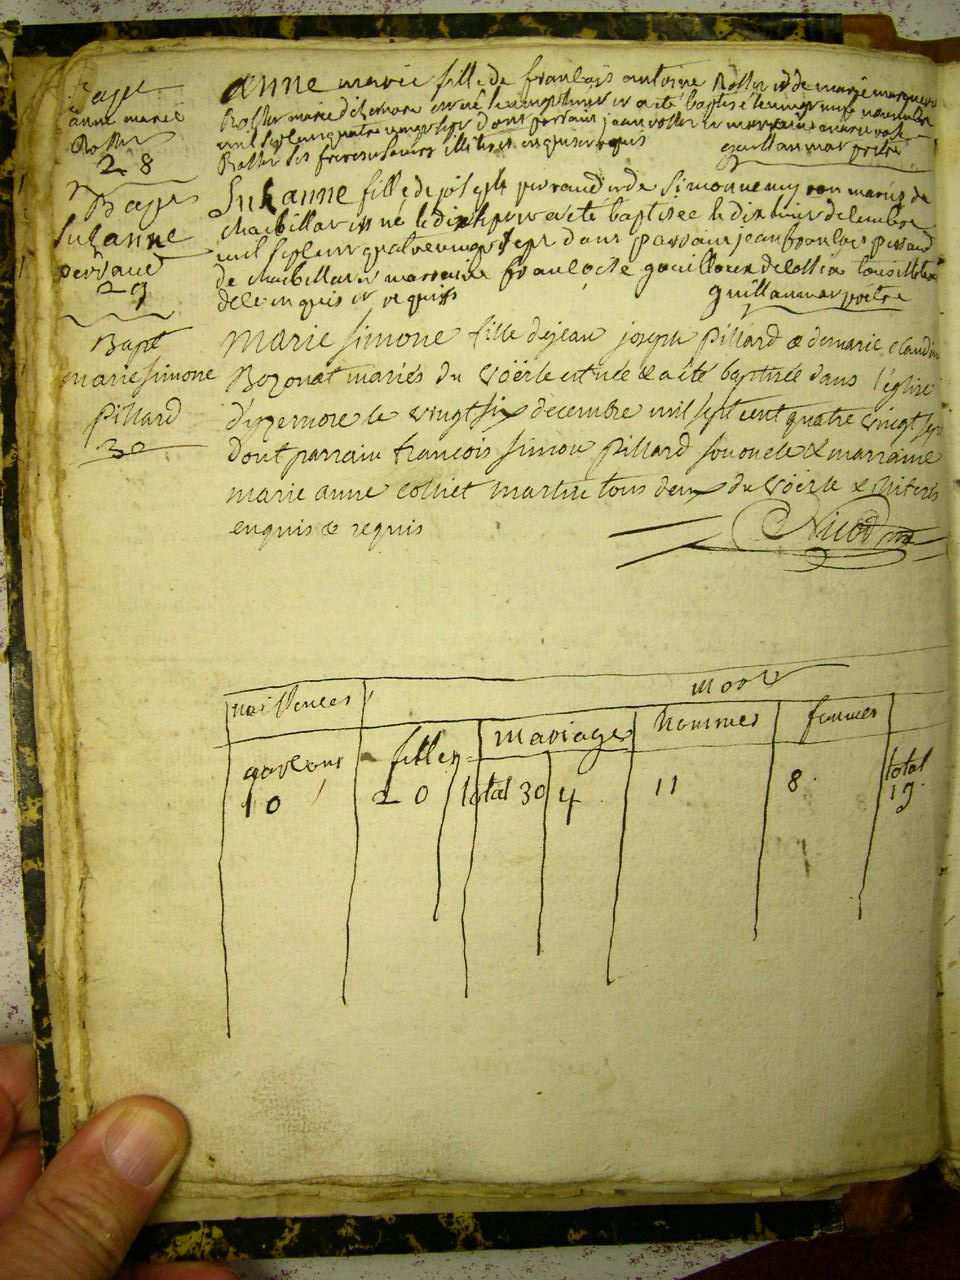 Bapt
anne marie
Rosset
28
anne marie fille de françois antoine Rosset et de marie
Rosset mariés d'izernore est né le vingt et a été baptisé le vingt novembre
mil sept cent quatre vingt sept dont parrain jean rosset et marraine marie
Rosset ses frere et soeur illiterés enquis et requis guillaumar pretre
Bapt
Suzanne
perraud
29
Suzanne fille de joseph perraud et de simonne mariés de
charbillat est né le dix et a été baptisée le dix decembre
mil sept cent quatre vingt sept dont parrain jean françois perraud
de charbillat et marraine françoise gouilloux
de le enquis et requis guillaumar pretre
Bapt
marie simone
pillard
30
Marie simone fille de jean joseph pillard & de marie claudine
Bozonet mariés du Voërle est née & a été baptisée dans l'église
d'izernore le vingt six decembre mil sept cent quatre vingt sept
dont parrain francois simon pillard son oncle & marraine
marie anne colliet martin tous deux du Voërle & illiterés
enquis & requis
Nicod
naissences mort
garçons filles mariages hommes femmes
10 20 total 30 4 11 8 total 19